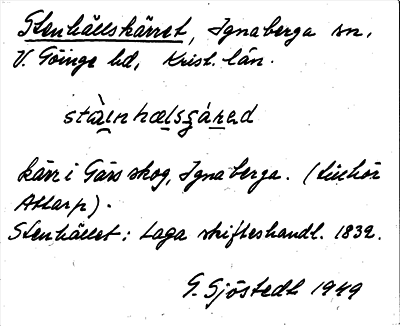 Stenhällskärret, Ignaberga sn.
V. Göinge hd, Krist. län.
stàlnhælsgáred
kärr i Gärs skog, Ignaberga. (tillhör
Attarp).
Stenhället: Laga skifteshandl. 1832.
G. Sjöstedt 1949